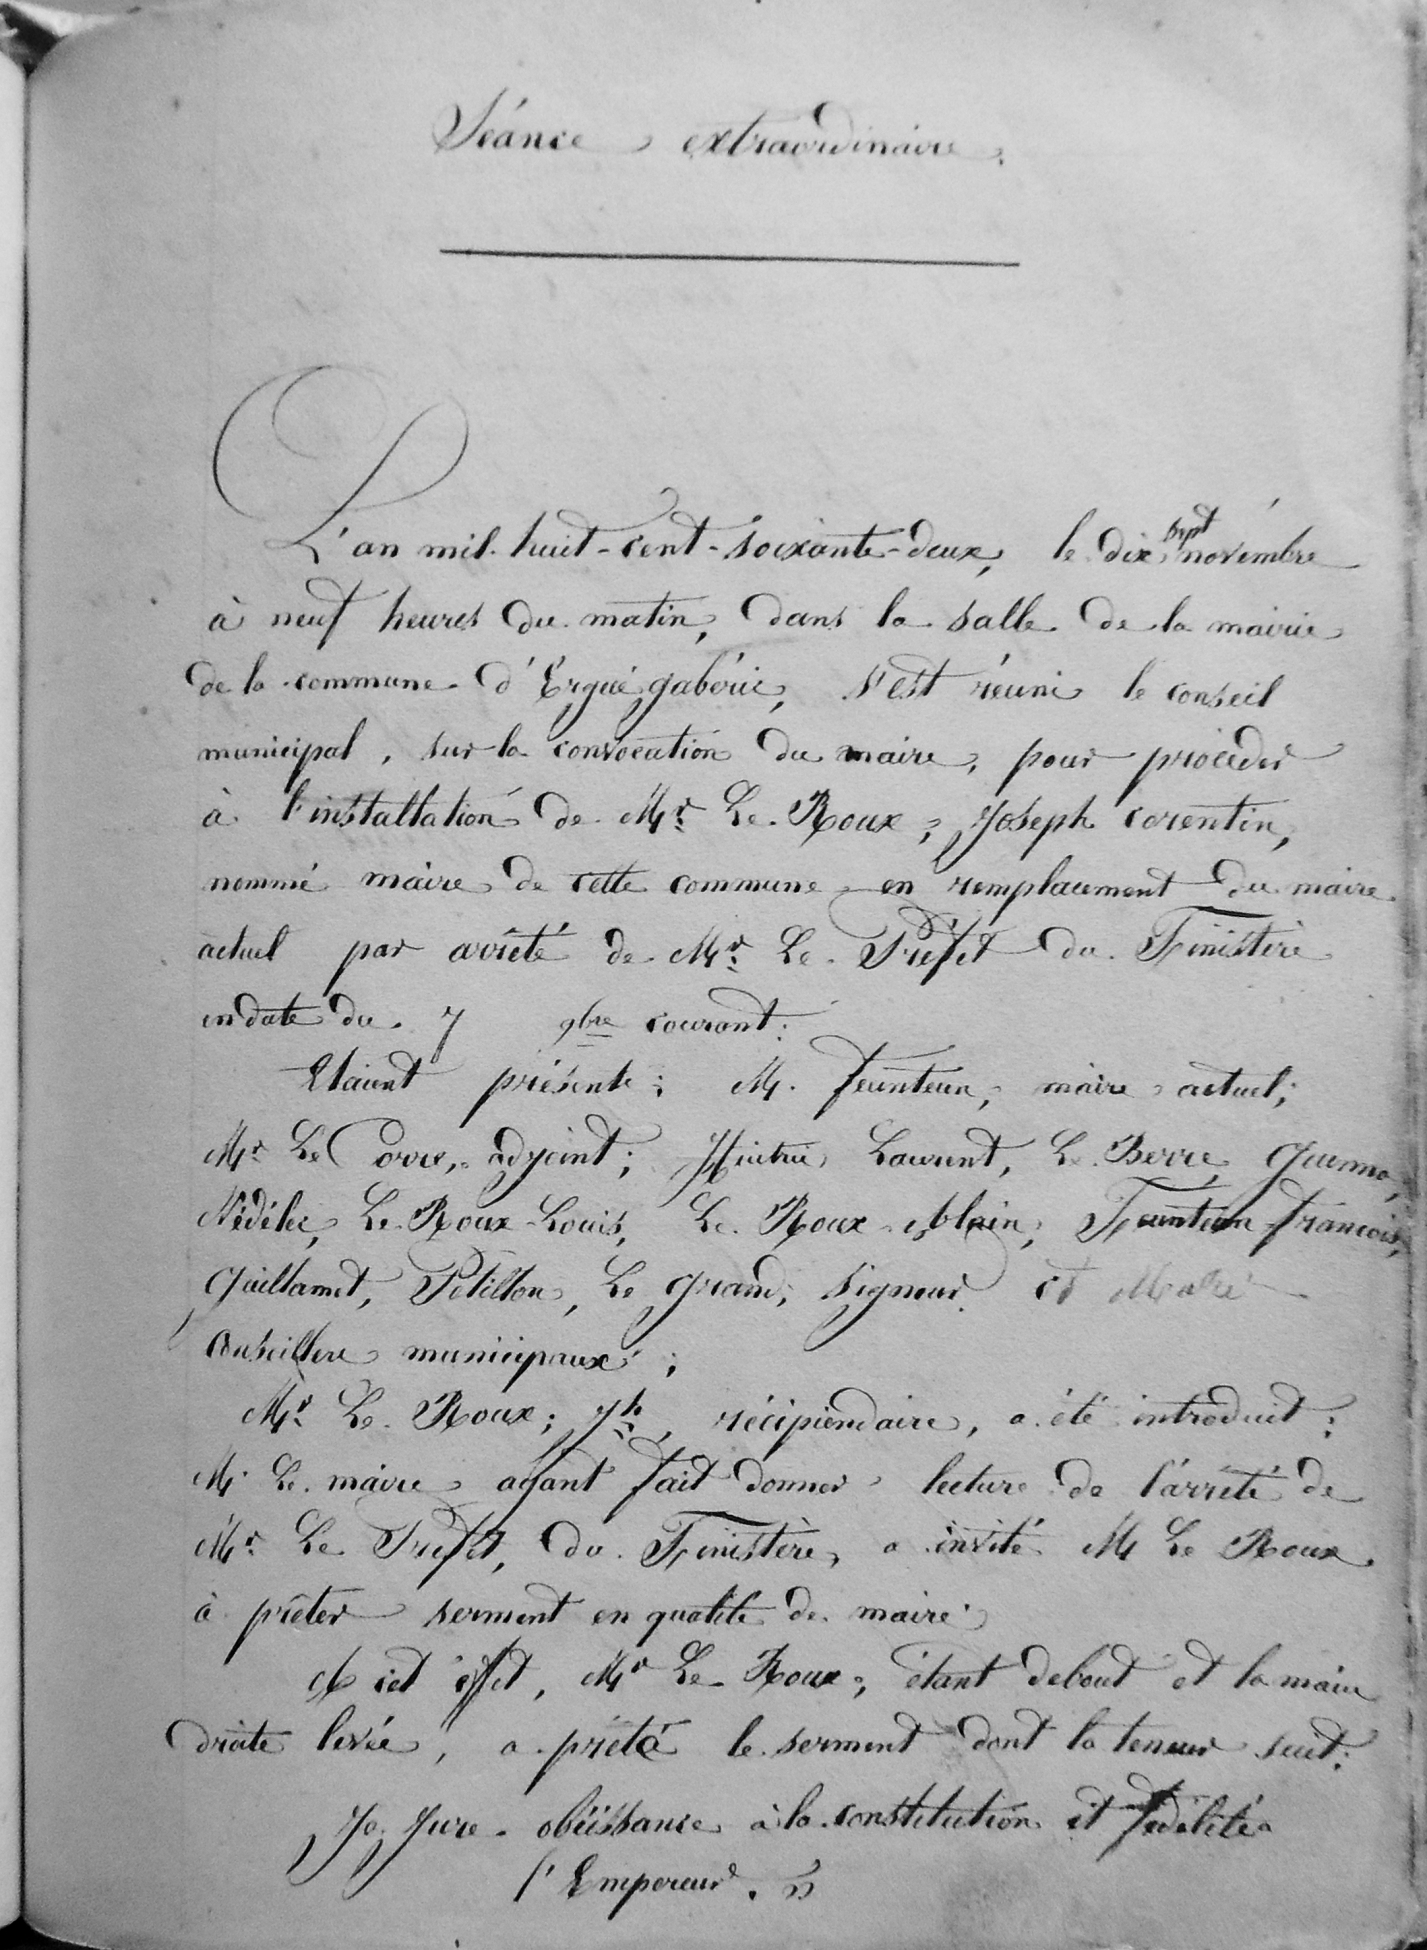 Séance extraordinaire.
L'an mil-huit-cent-soixante-deux, le dix sept novembre
à neuf heures du matin, dans la salle de la mairie
de la commune d'Ergué gabéric, s'est réuni le conseil
municipal, sur la convocation du maire, pour procéder
à l'installation de Mr. Le Roux, Joseph Corentin,
nommé maire de cette commune en remplacement du maire
actuel par arrêté de Mr. Le Préfet du Finistère
en date du 7 9bre courant.
Etaient présents: M. Feunteun, maire actuel;
Mr. Le Corre, adjoint; Laurent, Le Berre, Guenno,
Nédélec, Le Roux Louis, Le Roux Alain, Feunteun François,
Gaillamet, Pétillon, Le Grand, Signour et Mahé
conseillers municipaux;
Mr. Le Roux, Jh, récipiendaire, a été introduit;
M. Le maire ayant fait donner lecture de l'arrêté de
Mr. Le Préfet, du Finistère, a invité M Le Roux
à prêter serment en qualité de maire.
A cet effet, Mr Le Roux, étant debout et la main
droite levée, a prêté le serment dont la teneur suit:
Je Jure obéissance à la constitution et fidélité à
l'Empereur. »